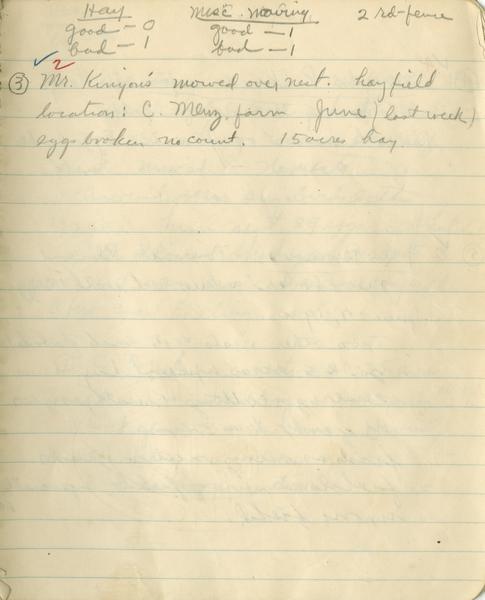 Hay    Misc. Mowing    2 rd-fence
good - 0    good - 1
bad - 1    bad - 1
✓ 2
③ Mr. Kinyon's mowed over nest. hayfield
location: C. Menz farm June (last week)
eggs broken no count. 15 acres hay